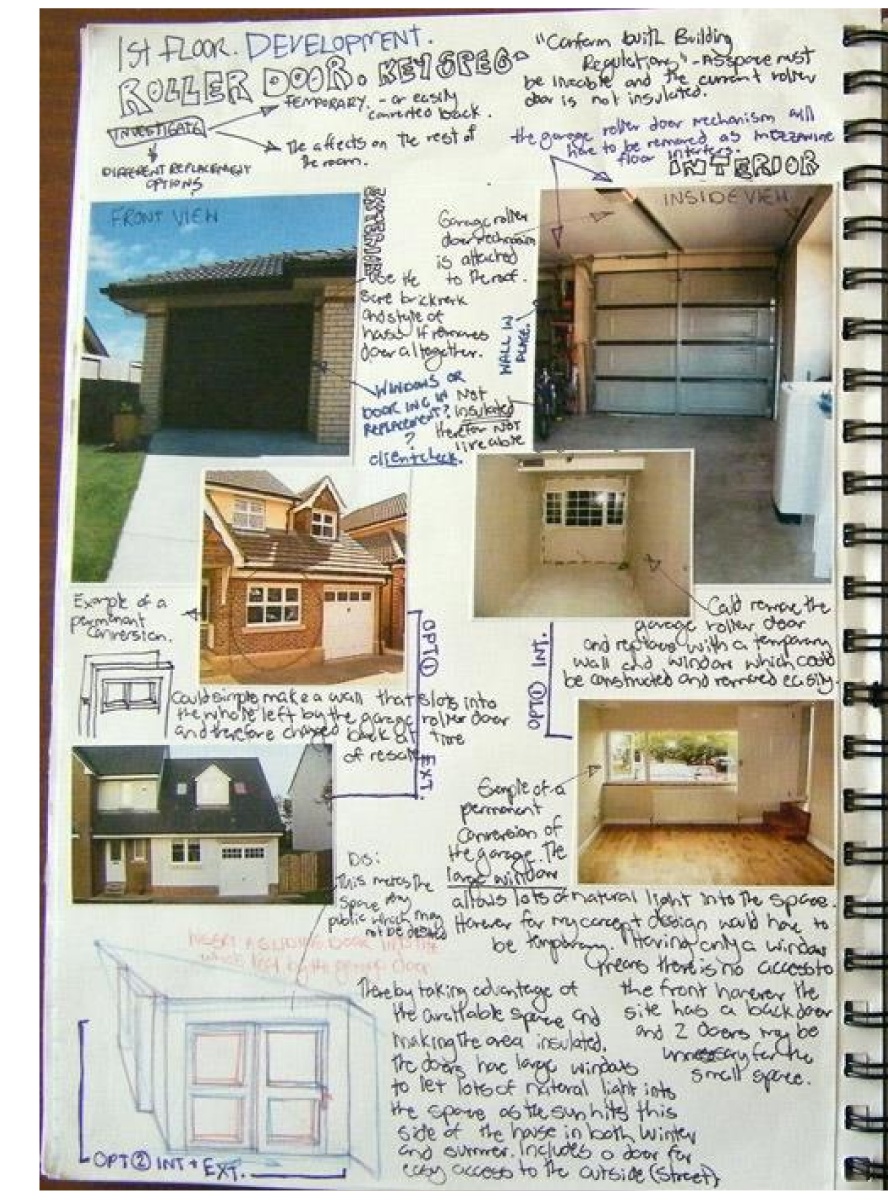 1ST FLOOR. DEVELOPMENT.
ROLLER DOOR. KEY SPEC-
"Conform with Building
Regulations" - As space must
be liveable and the current roller
door is not insulated.
INVESTIGATE
TEMPORARY. - or easily
converted back.
The affects on the rest of
the room.
DIFFERENT REPLACEMENT
OPTIONS
the garage roller door mechanism will
have to be removed as mezzanine
floor interfers.
INTERIOR
EXTERIOR
FRONT VIEW
INSIDE VIEW
Garage roller
door mechanism
is attached
to the roof.
Use the
same brickwork
and style of
house if removes
door altogether.
WALL IN
PLACE.
WINDOWS OR
DOOR ING IN
REPLACEMENT?
?
client check.
Not
insulated
therefor NOT
liveable
Example of a
permanent
conversion.
OPT ① EXT.
OPT ① INT.
Could remove the
garage roller door
and replace with a temporary
wall and window which could
be constructed and removed easily.
Could simple make a wall that slots into
the whole left by the garage roller door
and therefore changed back at time
of resale
Example of a
permanent
conversion of
the garage. The
large window
allows lots of natural light into the space.
However for my concept design would have to
be temporary. Having only a window
means there is no access to
the front however the
site has a back door
and 2 doors may be
unnessary for the
small space.
Dis:
This makes the
space very
public which may
not be desired
INSERT A SLIDING DOOR INTO THE
whole left by the garage door
Thereby taking advantage of
the available space and
making the area insulated.
The doors have large windows
to let lots of natural light into
the space as the sun hits this
side of the house in both winter
and summer. Includes a door for
easy access to the outside (street)
OPT ② INT + EXT.